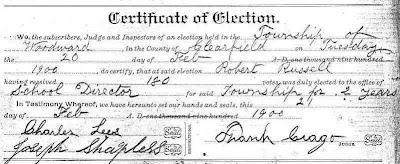 Certificate of Election.
We, the subscribers, Judge and Inspectors of an election held in the Township of
Woodward in the County of Clearfield on Tuesday
the 20 day of Feb A. D. one thousand nine hundred
1900, do certify, that at said election Robert Russell
having received 180 votes, was duly elected to the office of
School Director for said Township for 2 Years
In Testimony Whereof, we have hereunto set our hands and seals, this 21
day of Feb A. D. one thousand nine hundred 1900
Charles Lees Seal
Joseph Shapless Seal Frank Seal